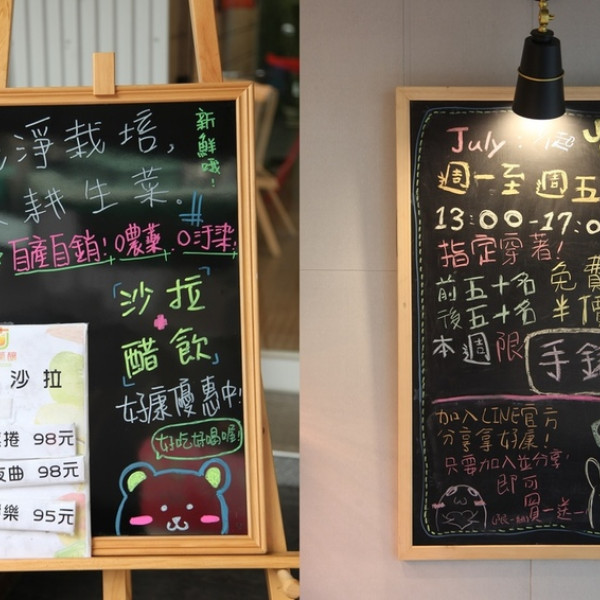 淨栽培,
耕生菜.
新鮮哦!
自產自銷! 0農藥 0汙染!
「沙拉
+
醋飲」
好康優惠中!
好吃好喝喔!
沙拉
捲 98元
夜曲 98元
樂 95元
July
週一至週五
13:00-17:0
指定穿著!
前五十名 免費
後五十名 半價
本週限
手
加入LINE官方
分享拿好康!
只要加入並分享,
即可
買一送一